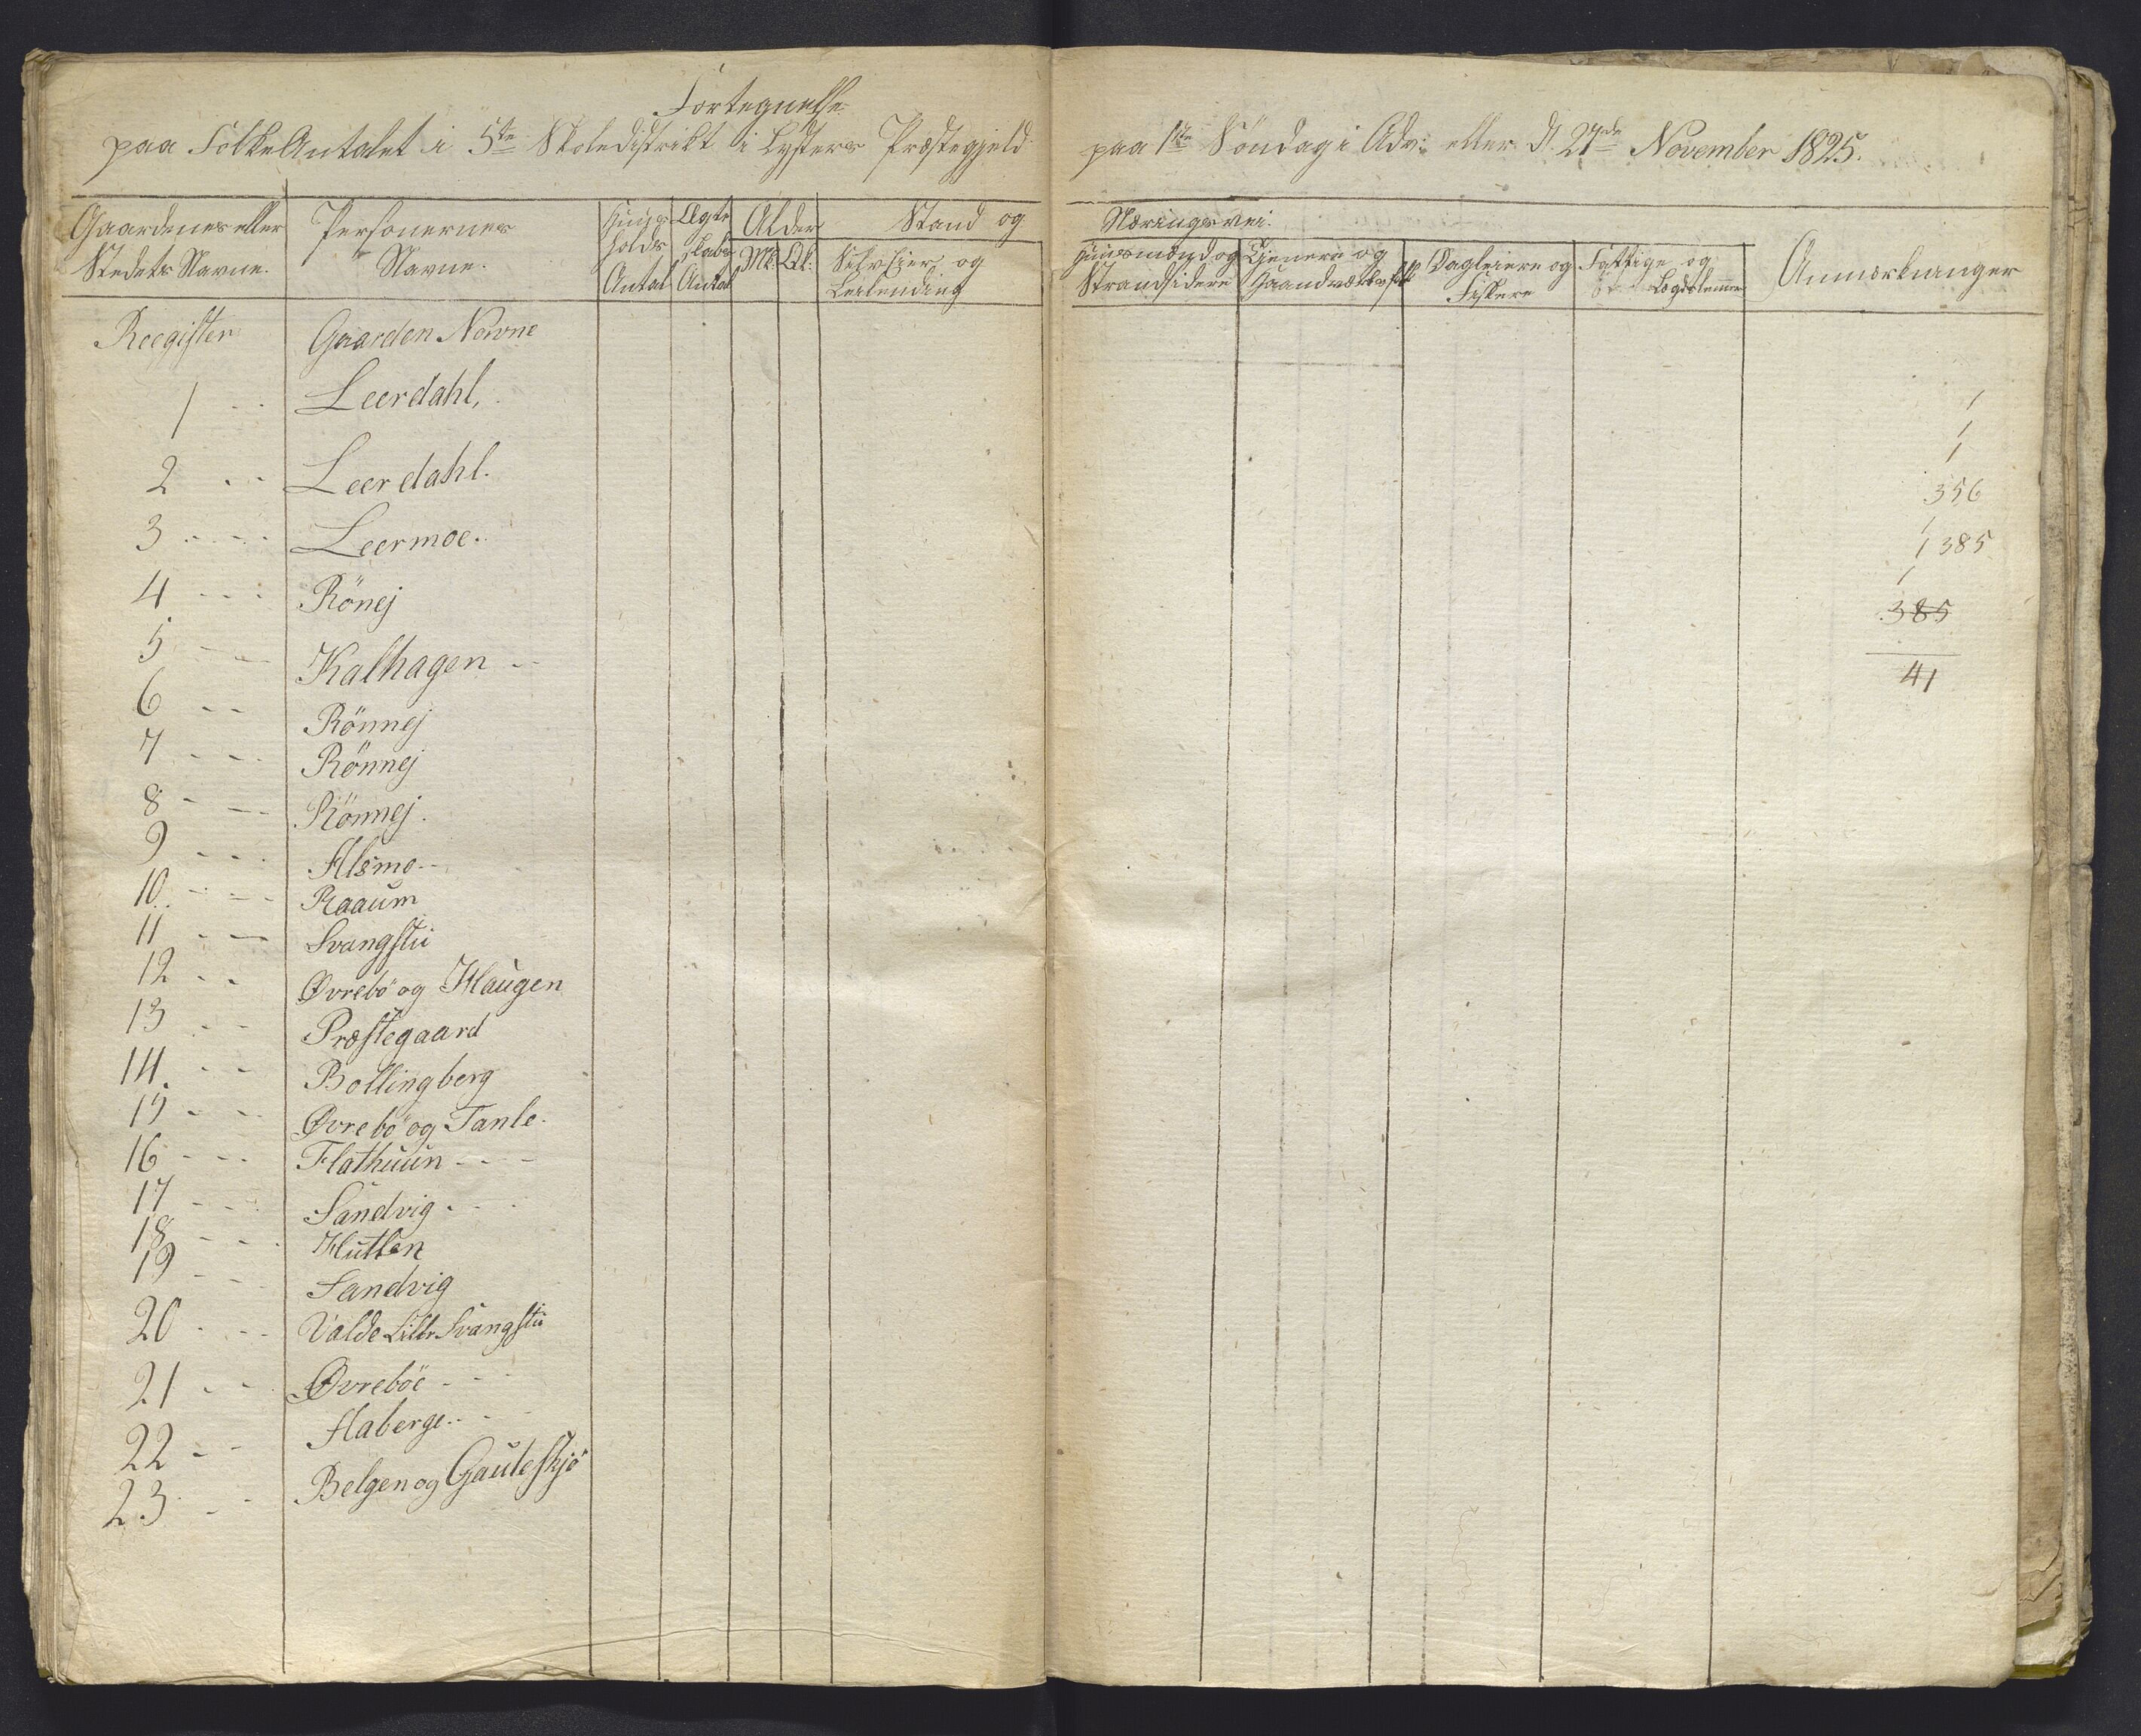 Fortegnelse
paa FolkeAntalet i 5te Skoledistrikt i Lysters Præstegjeld paa 1ste Söndag i Adv: eller d. 27de November 1825.
Gaardenes eller Stedets Navne.
Personernes Navne.
Huus holds Antal
Ægte skabs Antal
Alder
Mk: Qk:
Stand og Næringsvei.
Selveier og Leilending
Huusmænd og Strandsidere
Tjenere og Haandværksfolk
Dagleiere og Fiskere
Fattige og Lægdslemmer
Anmærkninger
Reegister Gaarden Navne
1 Leerdahl,
2 Leerdahl.
3 Leermoe.
4 Rönej
5 Kalhagen
6 Rönnej
7 Rönnej
8 Rönnej.
9 Alsmo
10 Raaum
11 Svangstu
12 Øvrebö og Haugen
13 Præstegaard
14 Bollingberg
15 Øvrebö og Tanle
16 Flathuun
17 Sandvig
18 Hutlen
19 Sandvig
20 Valde Lille Svangstu
21 Øvreböe
22 Haberge
23 Belgen og Gauleskjö
1
1
1
356
1
1 385
1
385
41